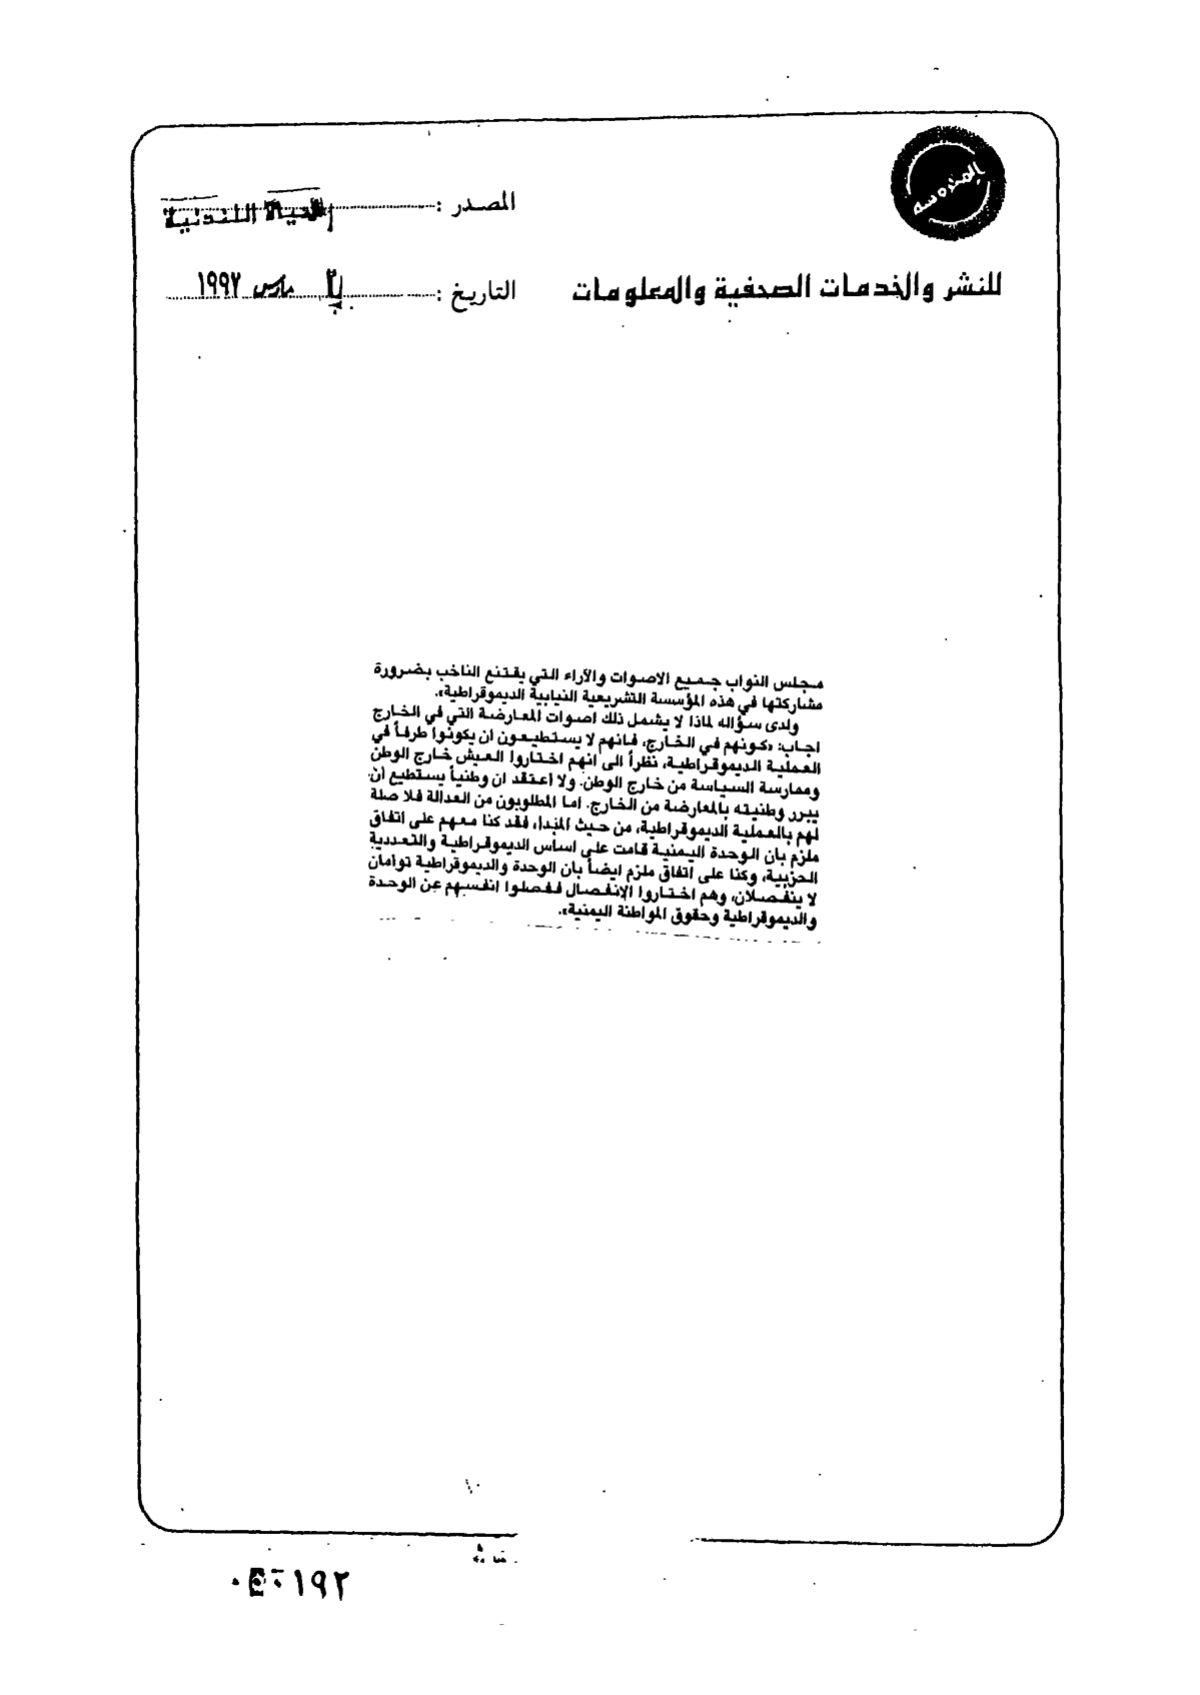 المصدر : الحياة اللندنية
للنشر والخدمات الصحفية والمعلومات
التاريخ : مارس ١٩٩٧
مجلس النواب جميع الاصوات والآراء التي يقتنع الناخب بضرورة
مشاركتها في هذه المؤسسة التشريعية النيابية الديموقراطية».
ولدى سؤاله لماذا لا يشمل ذلك اصوات المعارضة التي في الخارج
اجاب: «كونهم في الخارج، فانهم لا يستطيعون ان يكونوا طرفاً في
العملية الديموقراطية، نظراً الى انهم اختاروا العيش خارج الوطن
وممارسة السياسة من خارج الوطن. ولا اعتقد ان وطنياً يستطيع ان
يبرر وطنيته بالمعارضة من الخارج. اما المطلوبون من العدالة فلا صلة
لهم بالعملية الديموقراطية، من حيث المبدا، فقد كنا معهم على اتفاق
ملزم بان الوحدة اليمنية قامت على اساس الديموقراطية والتعددية
الحزبية، وكنا على اتفاق ملزم ايضاً بان الوحدة والديموقراطية توامان
لا ينفصلان، وهم اختاروا الانفصال ففصلوا انفسهم عن الوحدة
والديموقراطية وحقوق المواطنة اليمنية».